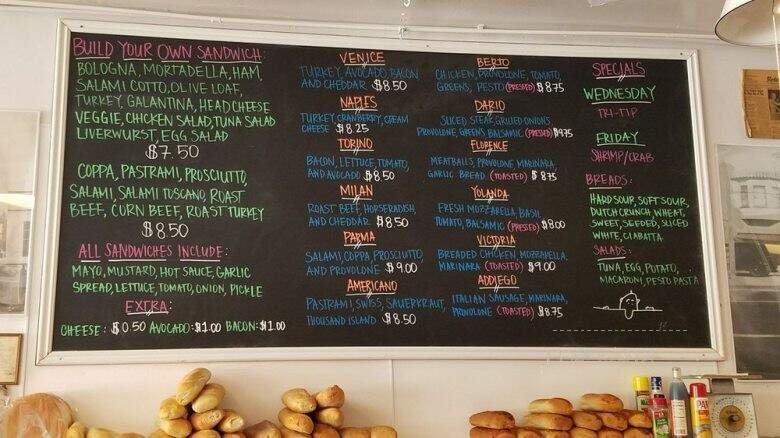 BUILD YOUR OWN SANDWICH
BOLOGNA, MORTADELLA, HAM,
SALAMI COTTO, OLIVE LOAF,
TURKEY, GALANTINA, HEAD CHEESE
VEGGIE, CHICKEN SALAD, TUNA SALAD
LIVERWURST, EGG SALAD
$7.50
COPPA, PASTRAMI, PROSCIUTTO,
SALAMI, SALAMI TUSCANO, ROAST
BEEF, CORN BEEF, ROAST TURKEY
$8.50
ALL SANDWICHES INCLUDE:
MAYO, MUSTARD, HOT SAUCE, GARLIC
SPREAD, LETTUCE, TOMATO, ONION, PICKLE
EXTRA:
CHEESE: $0.50 AVOCADO: $1.00 BACON: $1.00
VENICE
TURKEY, AVOCADO, BACON
AND CHEDDAR $8.50
NAPLES
TURKEY, CRANBERRY, CREAM
CHEESE $8.25
TORINO
BACON, LETTUCE, TOMATO,
AND AVOCADO $8.50
MILAN
ROAST BEEF, HORSERADISH,
AND CHEDDAR $8.50
PARMA
SALAMI, COPPA, PROSCIUTTO,
AND PROVOLONE $9.00
AMERICANO
PASTRAMI, SWISS, SAUERKRAUT,
THOUSAND ISLAND $8.50
BERTO
CHICKEN, PROVOLONE, TOMATO,
GREENS, PESTO (PRESSED) $8.75
DARIO
SLICED STEAK, GRILLED ONIONS,
PROVOLONE, GREENS, BALSAMIC (PRESSED) $9.75
FLORENCE
MEATBALLS, PROVOLONE, MARINARA,
GARLIC BREAD (TOASTED) $8.75
YOLANDA
FRESH MOZZARELLA, BASIL
TOMATO, BALSAMIC (PRESSED) $8.00
VICTORIA
BREADED CHICKEN, MOZZARELLA,
MARINARA (TOASTED) $9.00
ADDIEGO
ITALIAN SAUSAGE, MARINARA,
PROVOLONE (TOASTED) $8.75
SPECIALS
WEDNESDAY
TRI-TIP
FRIDAY
SHRIMP/CRAB
BREADS:
HARD SOUR, SOFT SOUR,
DUTCH CRUNCH, WHEAT,
SWEET, SEEDED, SLICED
WHITE, CIABATTA
SALADS:
TUNA, EGG, POTATO,
MACARONI, PESTO PASTA